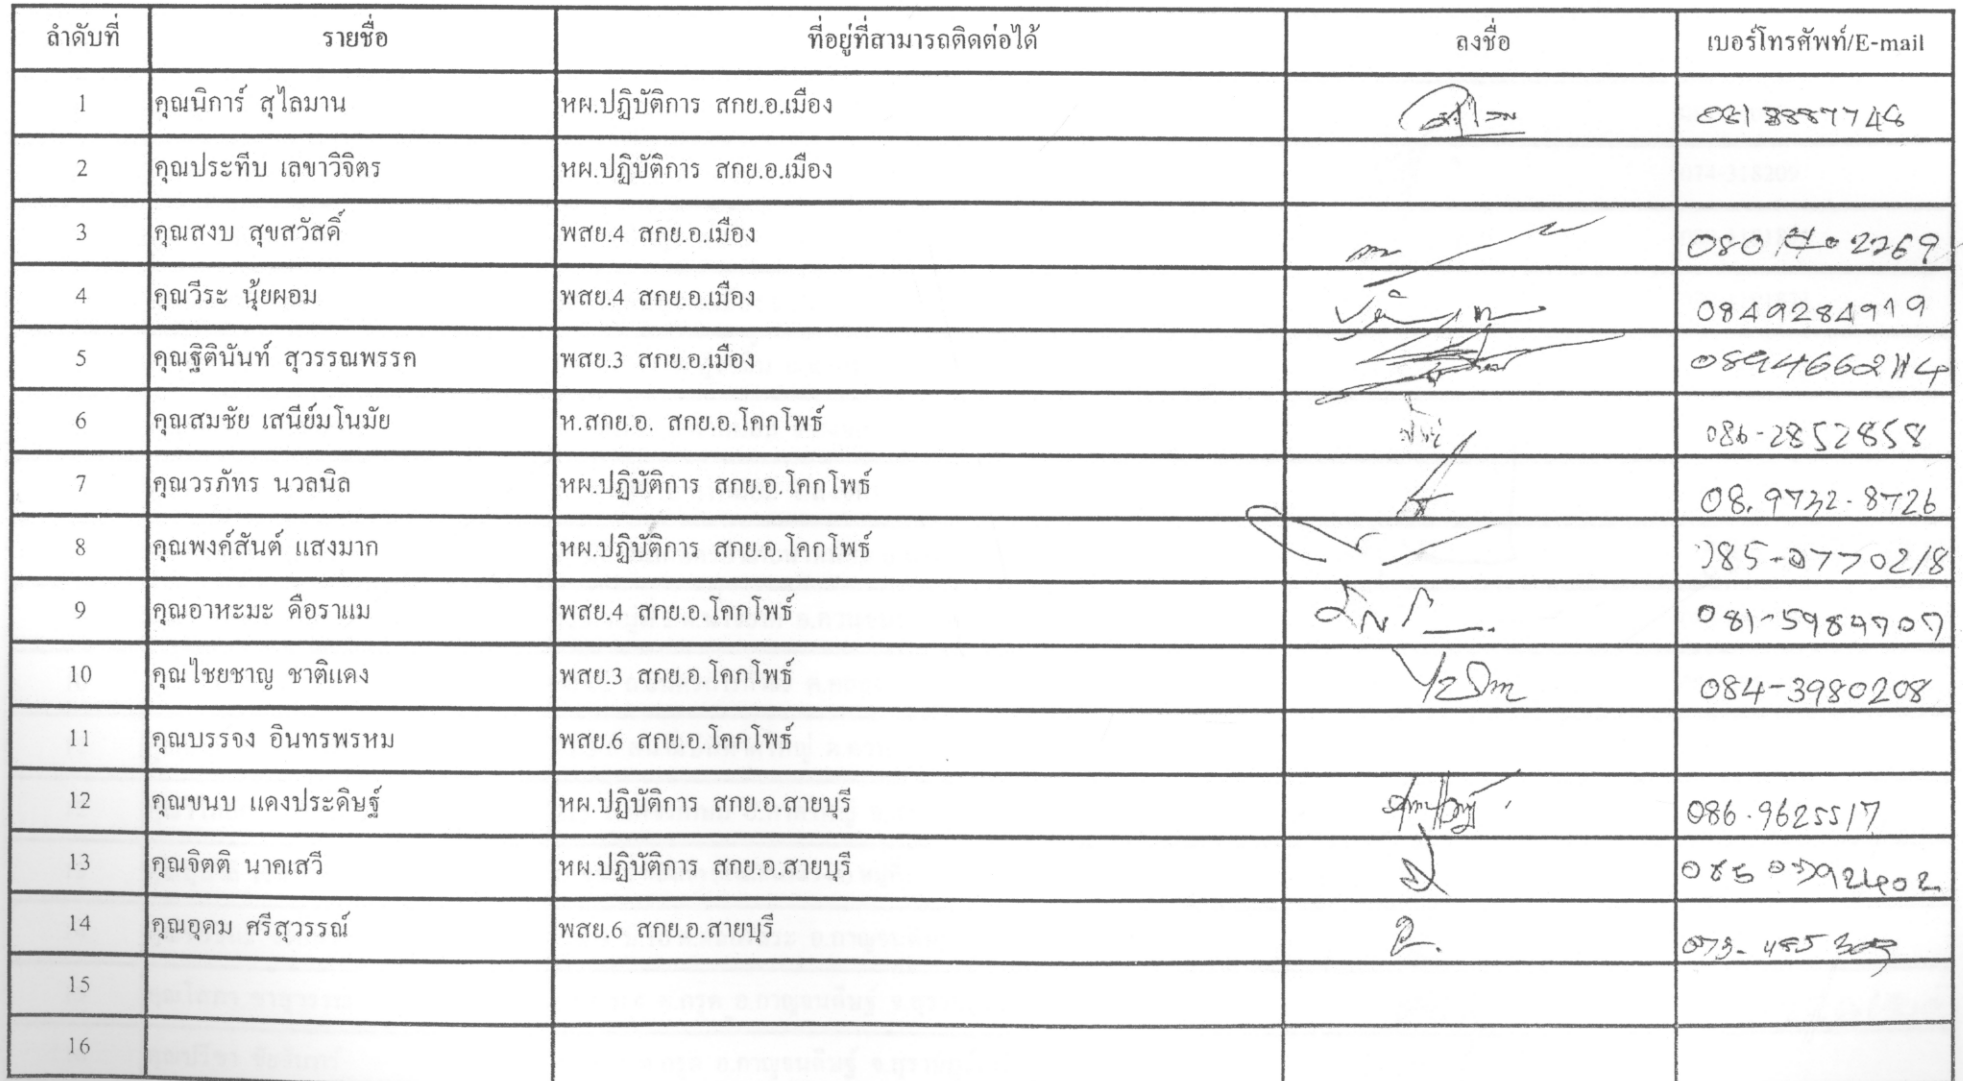 ลำดับที่ รายชื่อ ที่อยู่ที่สามารถติดต่อได้ ลงชื่อ เบอร์โทรศัพท์/E-mail
1 คุณนิการ์ สุไลมาน หผ.ปฏิบัติการ สกย.อ.เมือง 081 8887748
2 คุณประทีบ เลขาวิจิตร หผ.ปฏิบัติการ สกย.อ.เมือง
3 คุณสงบ สุขสวัสดิ์ พสย.4 สกย.อ.เมือง
4 คุณวีระ นุ้ยผอม พสย.4 สกย.อ.เมือง 0849284919
5 คุณฐิตินันท์ สุวรรณพรรค พสย.3 สกย.อ.เมือง
6 คุณสมชัย เสนีย์มโนมัย ห.สกย.อ. สกย.อ.โคกโพธ์ 086-2852858
7 คุณวรภัทร นวลนิล หผ.ปฏิบัติการ สกย.อ.โคกโพธ์ 08.9732-8726
8 คุณพงค์สันต์ แสงมาก หผ.ปฏิบัติการ สกย.อ.โคกโพธ์ 085-0770218
9 คุณอาหะมะ ดือราแม พสย.4 สกย.อ.โคกโพธ์
10 คุณไชยชาญ ชาติแดง พสย.3 สกย.อ.โคกโพธ์ 084-3980208
11 คุณบรรจง อินทรพรหม พสย.6 สกย.อ.โคกโพธ์
12 คุณขนบ แดงประดิษฐ์ หผ.ปฏิบัติการ สกย.อ.สายบุรี 086.9625517
13 คุณจิตติ นาคเสวี หผ.ปฏิบัติการ สกย.อ.สายบุรี
14 คุณอุดม ศรีสุวรรณ์ พสย.6 สกย.อ.สายบุรี
15
16